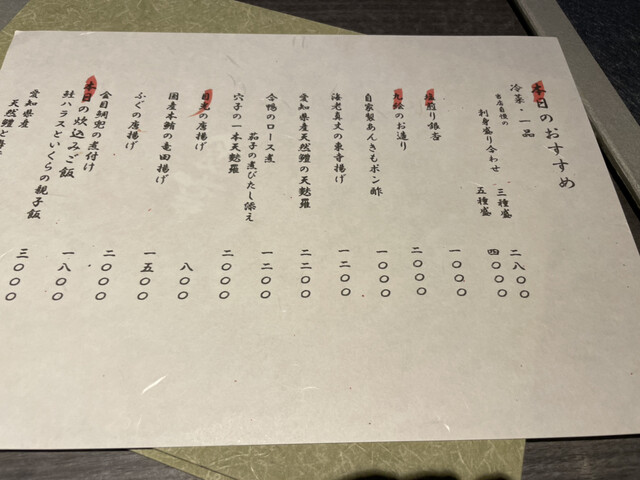 本日のおすすめ
冷菜・一品
当店自慢の
刺身盛り合わせ 三種盛 二八〇〇
五種盛 四〇〇〇
塩煎り銀杏 一〇〇〇
九絵のお造り 二〇〇〇
自家製あんきもポン酢 一〇〇〇
海老真丈の東寺揚げ 一二〇〇
愛知県産天然鱧の天麩羅 二二〇〇
合鴨のロース煮 一二〇〇
茄子の煮びたし添え
穴子の一本天麩羅 二〇〇〇
目光の唐揚げ 八〇〇
国産本鮪の竜田揚げ 一五〇〇
ふぐの唐揚げ 二〇〇〇
金目鯛兜の煮付け 一八〇〇
本日の炊込みご飯
鮭ハラスといくらの親子飯 三〇〇〇
愛知県産
天然鱧と